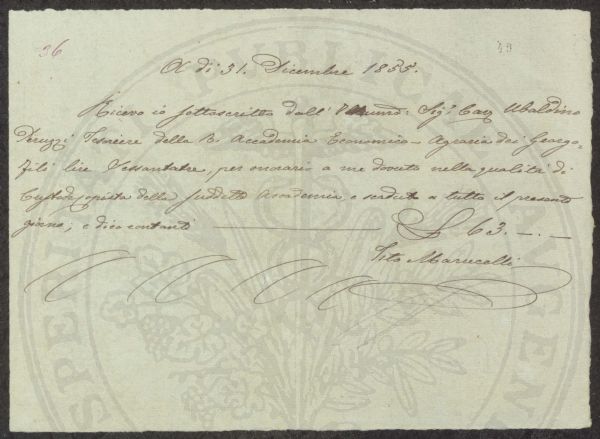 36
49
A dì 31. Dicembre 1855.
Ricevo io sottoscritto dall' Sig.r Cav Ubaldino
Peruzzi Tesoriere della R. Accademia Economico-Agraria dei Georgo-
fili lire Sessantatre, per onorario a me dovuto nella qualità di
Custode, copista della suddetta Accademia, e scaduto a tutto il presente
giorno; e dico contanti £ 63. -. -
Tito Marucelli